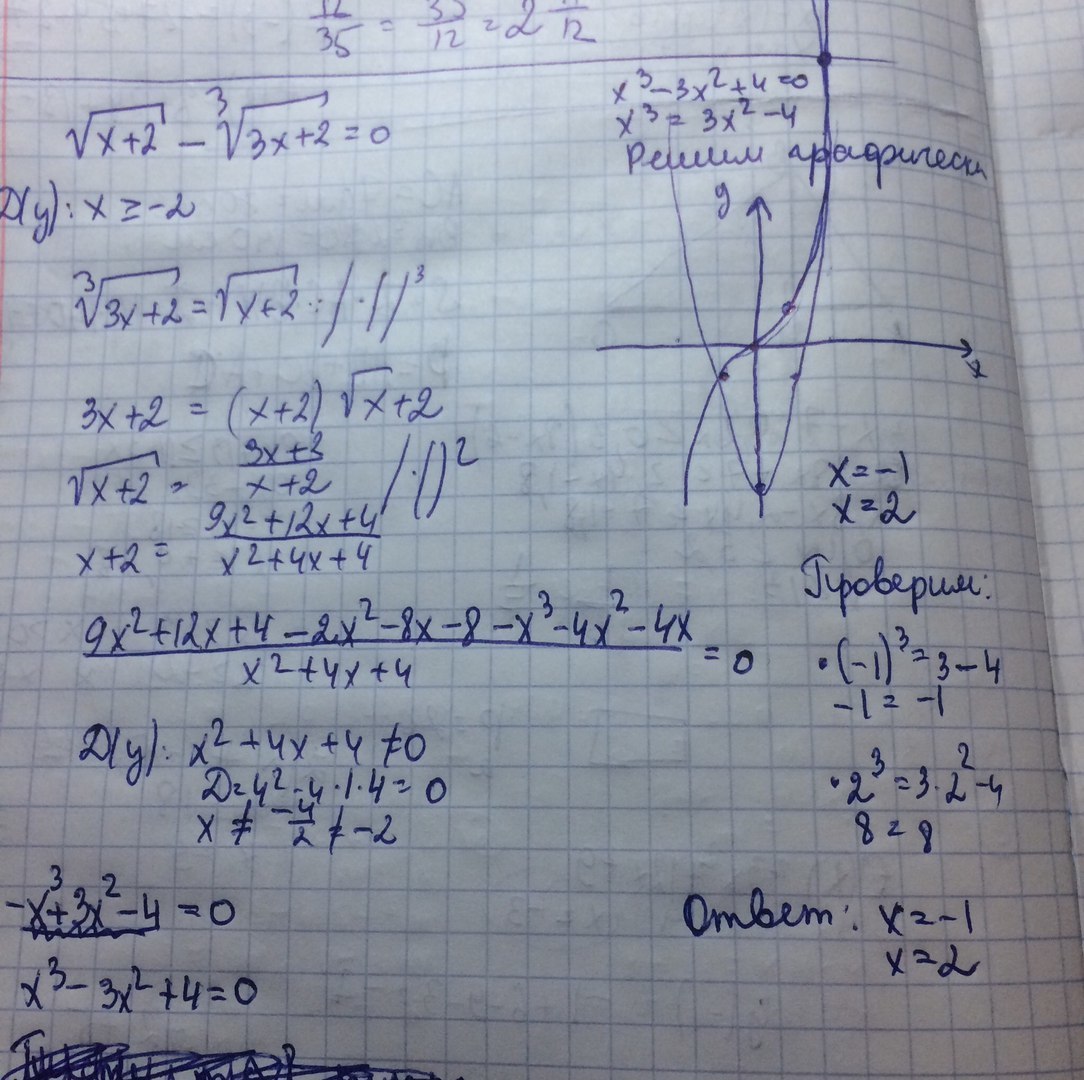 12/35 = 35/12 = 2 11/12
√(x+2) − ∛(3x+2) = 0
D(y): x ≥ −2
∛(3x+2) = √(x+2) /·()³
3x+2 = (x+2) √x+2
√(x+2) = (3x+2)/(x+2) /·()²
x+2 = (9x²+12x+4)/(x²+4x+4)
(9x²+12x+4−2x²−8x−8−x³−4x²−4x)/(x²+4x+4) = 0
D(y): x²+4x+4 ≠ 0
D=4²−4·1·4=0
x ≠ −4/2 ≠ −2
−x³+3x²−4 = 0
x³−3x²+4=0
x³−3x²+4=0
x³ = 3x²−4
Решим графически
y
x
x=−1
x=2
Проверим:
•(−1)³=3−4
−1=−1
•2³=3·2²−4
8=8
Ответ: x=−1
x=2